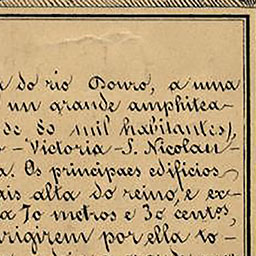 do rio Douro, a uma
um grande amphitea-
de 80 mil habitantes),
- Victoria - S. Nicolau -
a. Os principaes edificios
ais alta do reino, e ex-
a 70 metros e 30 centos,
irigirem por ella to-